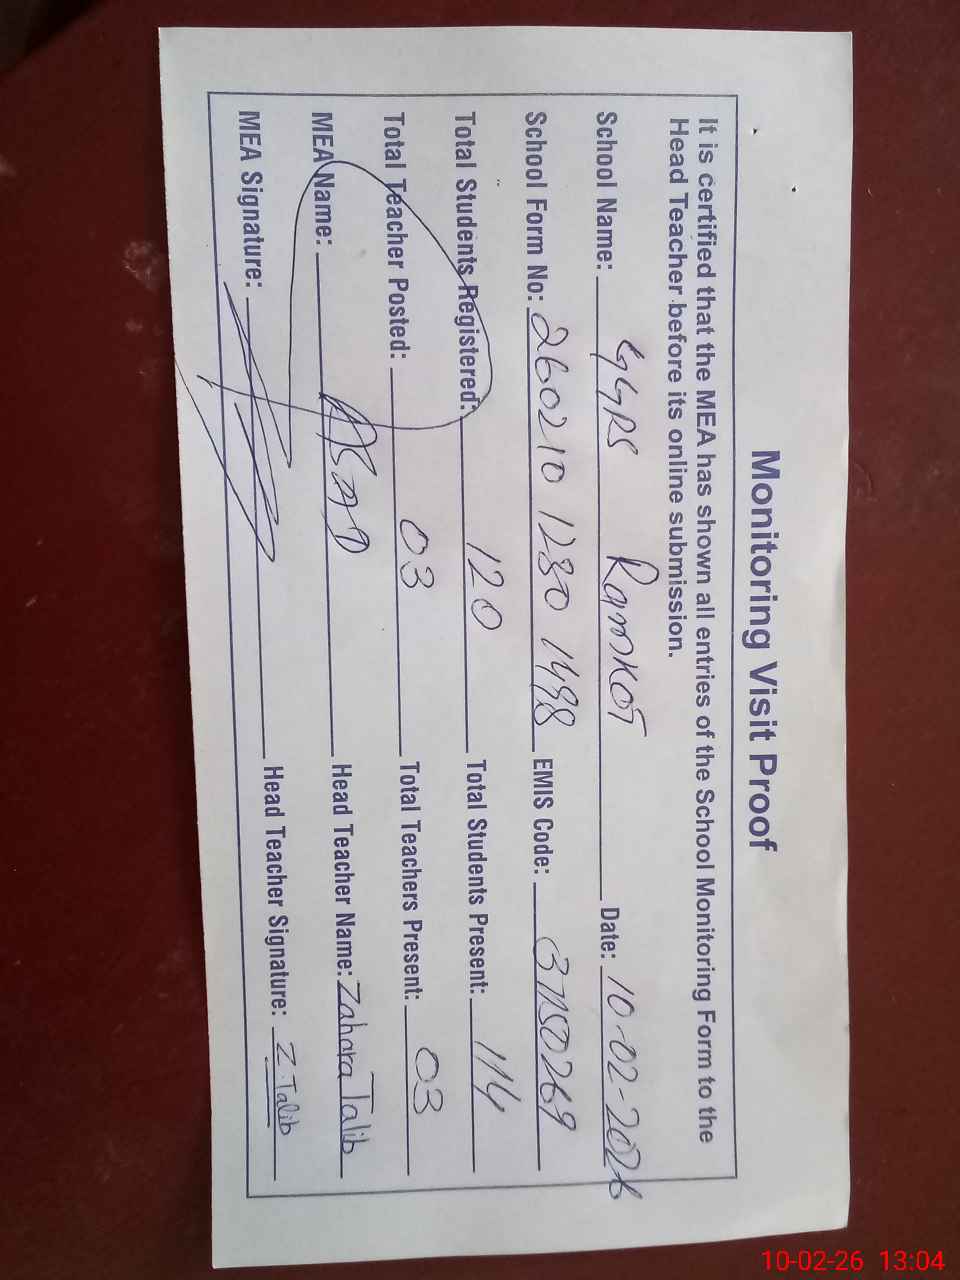 Monitoring Visit Proof
It is certified that the MEA has shown all entries of the School Monitoring Form to the
Head Teacher before its online submission.
School Name: GGPS Ramkot Date: 10-02-2026
School Form No: 260210 1280 1498 EMIS Code:
Total Students Registered: 120 Total Students Present: 114
Total Teacher Posted: 03 Total Teachers Present: 03
MEA Name: ASAD Head Teacher Name: Zahara Talib
MEA Signature: Head Teacher Signature: Z.Talib
10-02-26 13:04